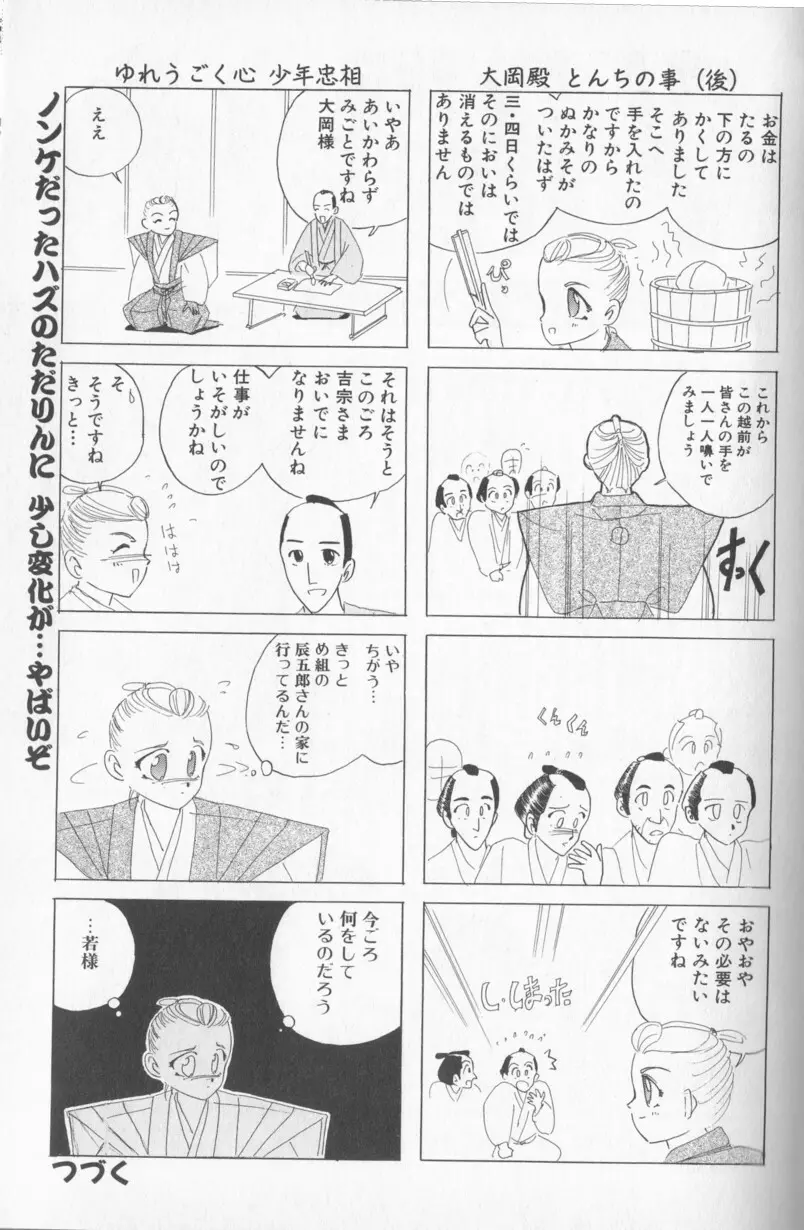 大岡殿 とんちの事 (後)
お金は
たるの
下の方に
かくして
ありました
そこへ
手を入れたの
ですから
かなりの
ぬかみそが
ついたはず
三・四日くらいでは
そのにおいは
消えるものでは
ありません
ぴ。
これから
この越前が
皆さんの手を
一人一人嗅いで
みましょう
すっく
くんくん
おやおや
その必要は
ないみたい
ですね
し、しまった
ゆれうごく心 少年忠相
いやあ
あいかわらず
みごとですね
大岡様
ええ
それはそうと
このごろ
吉宗さま
おいでに
なりませんね
仕事が
いそがしいので
しょうかね
そ
そうですね
きっと…
ははは
いや
ちがう…
きっと
め組の
辰五郎さんの家に
行ってるんだ…
今ごろ
何をして
いるのだろう
…若様
ノンケだったハズのただりんに 少し変化が…やばいぞ
つづく